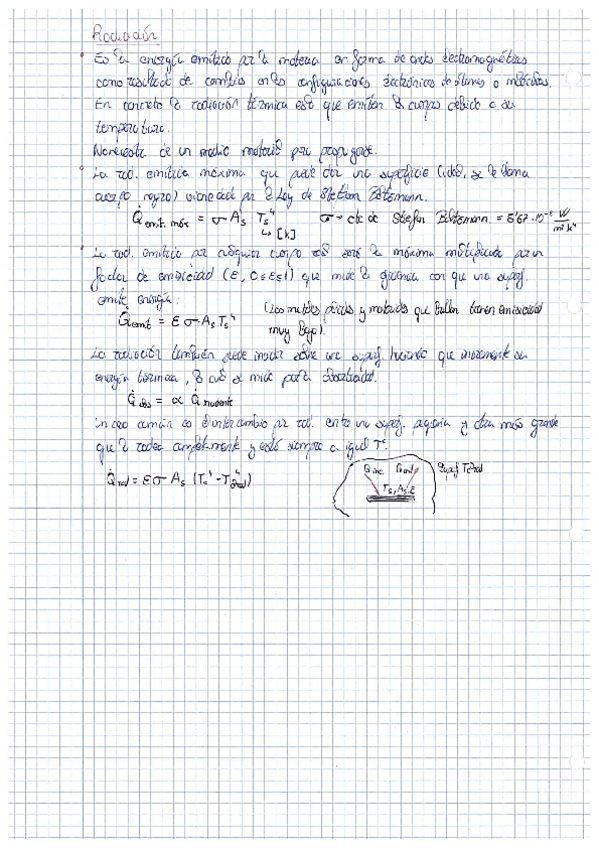 Radiación
• Es la energía emitida por la materia en forma de ondas electromagnéticas
como resultado de cambios en las configuraciones electrónicas de átomos o moléculas.
En concreto la radiación térmica es la que emiten los cuerpos debido a su
temperatura.
No necesita de un medio material para propagarse.
• La rad. emitida máxima que puede dar una superficie (ideal, se le llama
cuerpo negro) viene dada por la Ley de Stefan Boltzmann.
Q̇emit. máx = σ As Ts⁴ σ → cte de Stefan Boltzmann = 5'67·10⁻⁸ W/m²K⁴
↳ [K]
• La rad. emitida por cualquier cuerpo real será la máxima multiplicada por un
factor de emisividad (ε, 0≤ε≤1) que mide la eficiencia con que una superf.
emite energía:
Q̇emit = ε σ · As Ts⁴ (Los metales pulidos y materiales que brillan tienen emisividad
muy baja).
La radiación también puede incidir sobre una superf. haciendo que incremente su
energía térmica, lo cual se mide por la absortividad.
Q̇abs = α Q̇incidente
Un caso común es el intercambio por rad. entre una superf. pequeña y otra más grande
que la rodea completamente y está siempre a igual Tª.
Q̇rad = ε σ As (Ts⁴ - Talred⁴)
Q̇inc Q̇emit Superf Talred
Ts, As, ε